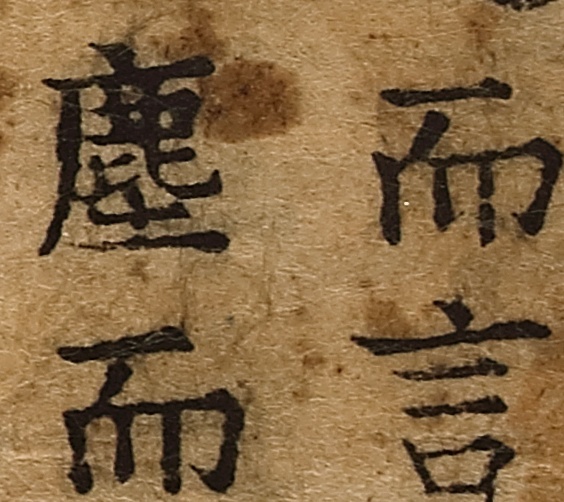 而言
塵而